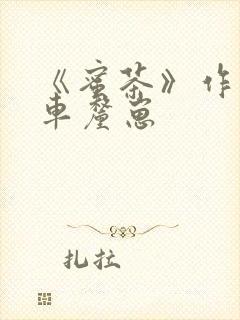 《蜜茶》作
車釐崽
扎拉